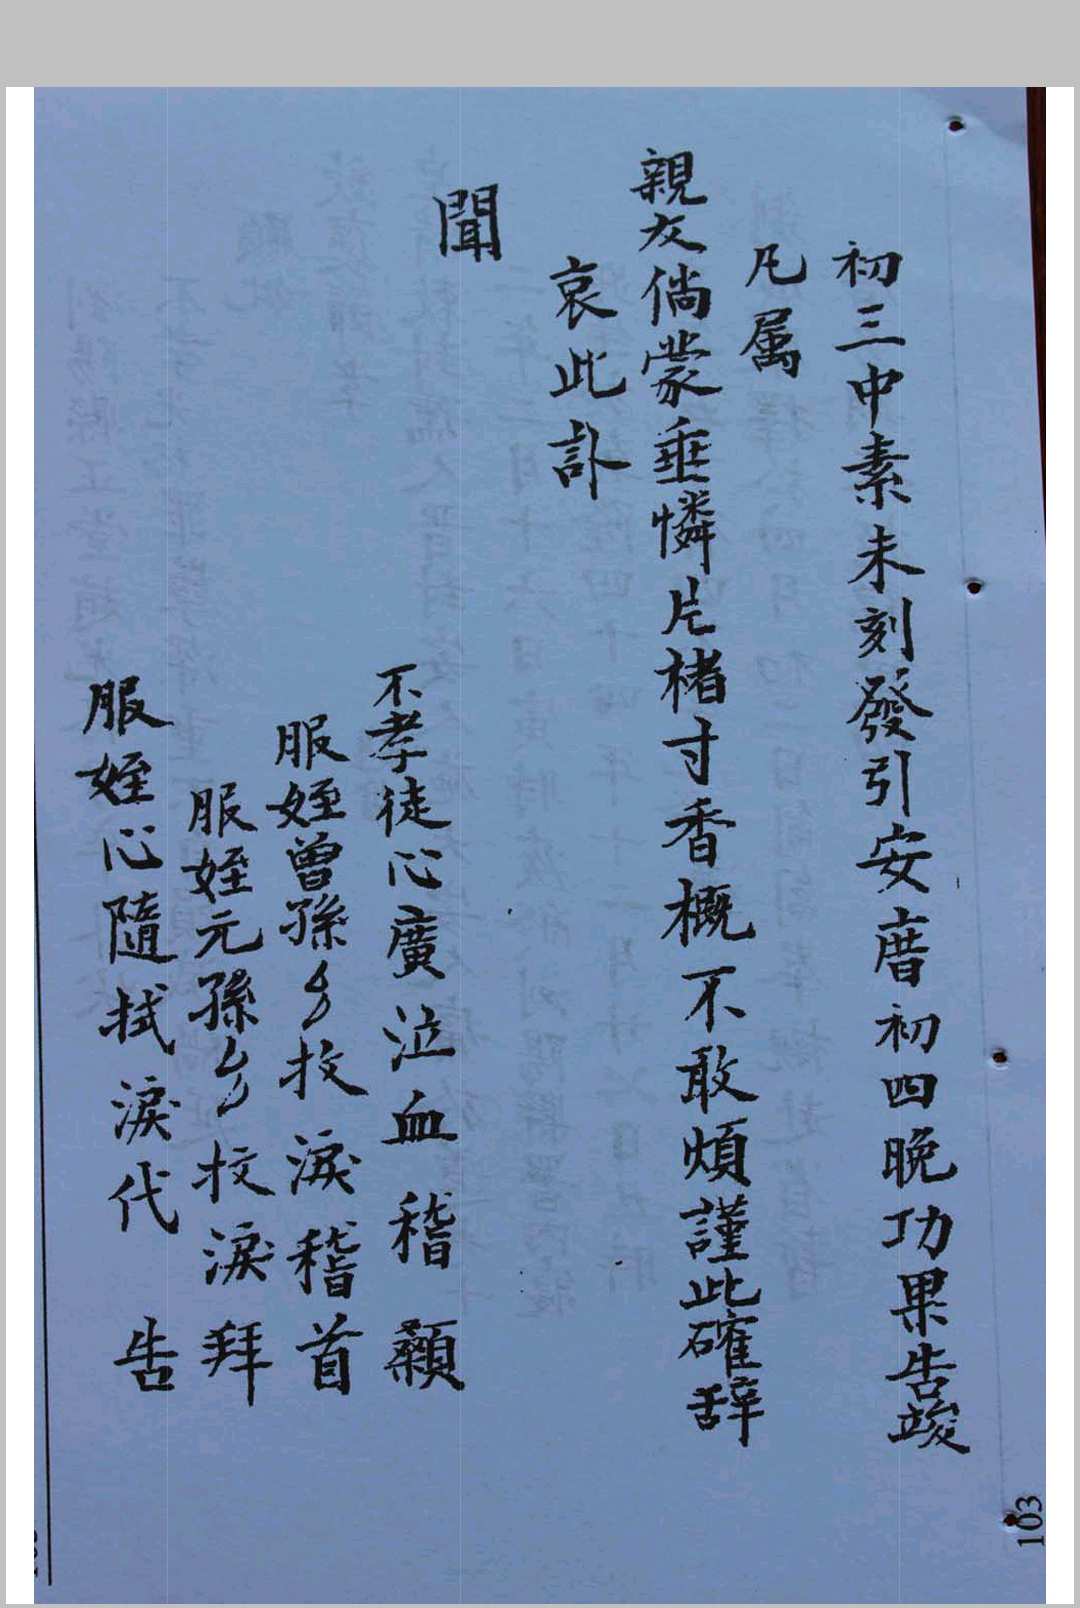 初三中素未刻發引安厝初四晚功果告竣
凡属
親友倘蒙垂憐片楮寸香概不敢煩謹此確辞
哀此訃
聞
不孝徒心廣泣血稽顙
服姪曾孫
抆淚稽首
服姪元孫
抆淚拜
服姪心隨拭淚代告
103